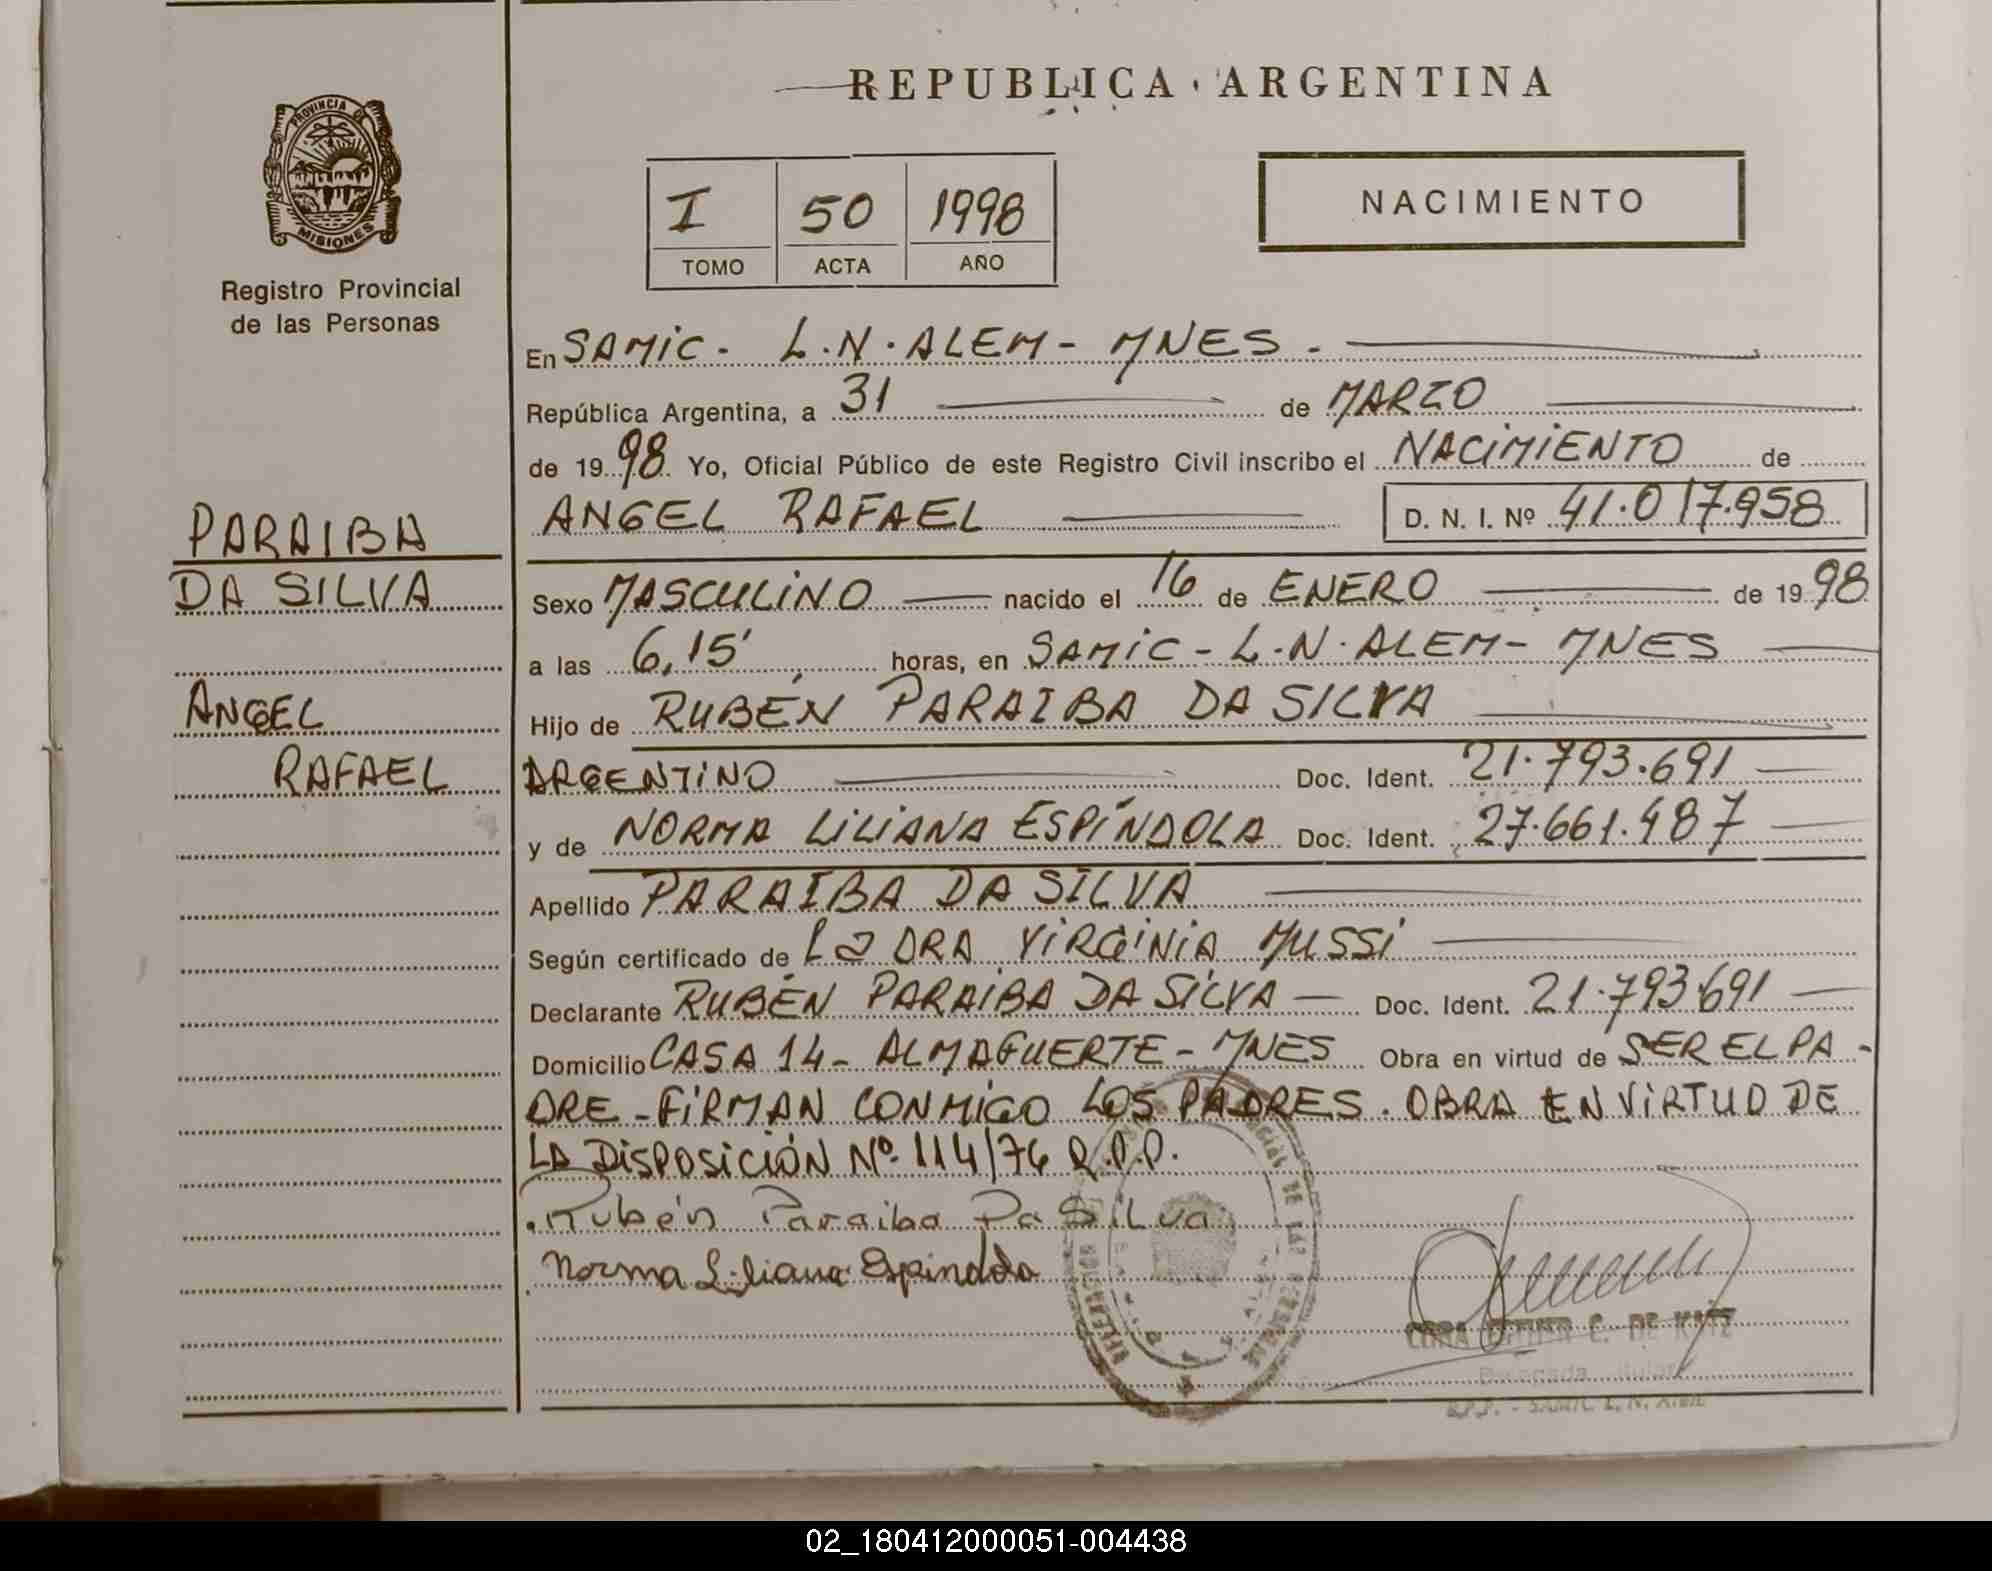 REPUBLICA ARGENTINA
PROVINCIA DE
MISIONES
Registro Provincial
de las Personas
I 50 1998
TOMO ACTA AÑO
NACIMIENTO
En SAMIC - L.N. ALEM - MNES -
República Argentina, a 31 de MARZO
de 1998 Yo, Oficial Público de este Registro Civil inscribo el NACIMIENTO de
ANGEL RAFAEL D. N. I. Nº 41.017.958
PARAIBA
DA SILVA
ANGEL
RAFAEL
Sexo MASCULINO nacido el 16 de ENERO de 1998
a las 6,15' horas, en SAMIC - L.N. ALEM - MNES
Hijo de RUBÉN PARAIBA DA SILVA
ARGENTINO Doc. Ident. 21.793.691
y de NORMA LILIANA ESPÍNDOLA Doc. Ident. 27.661.487
Apellido PARAIBA DA SILVA
Según certificado de La DRA VIRGINIA MUSSI
Declarante RUBÉN PARAIBA DA SILVA Doc. Ident. 21.793.691
Domicilio CASA 14 - ALMAFUERTE - MNES Obra en virtud de SER EL PA-
DRE - FIRMAN CONMIGO LOS PADRES. OBRA EN VIRTUD DE
LA DISPOSICIÓN Nº 114/76 R.P.P.
Rubén Paraiba Da SiLva
Norma Liliana Espindola
E. DE KATZ
Delegada Titular
R.P.P. - SAMIC L. N. ALEM
02_180412000051-004438